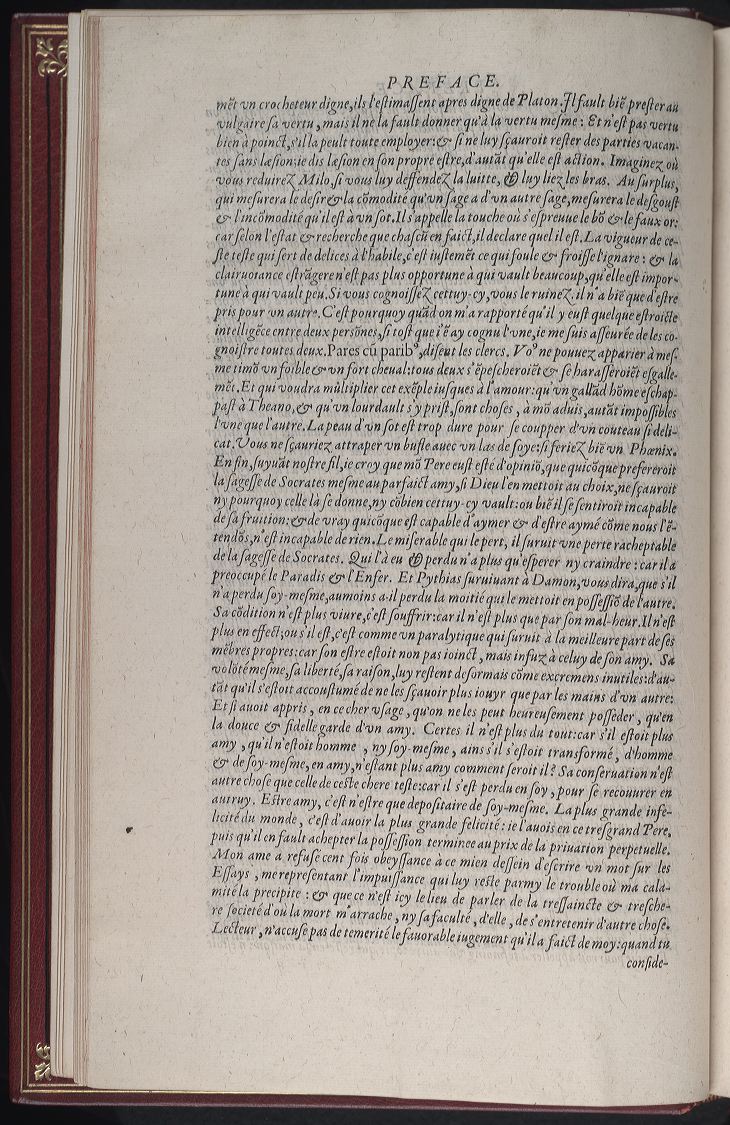 PREFACE.
mẽt vn crocheteur digne, ils l'estimassent apres digne de Platon. Il fault biẽ prester au
vulgaire sa vertu, mais il ne la fault donner qu'à la vertu mesme: Et n'est pas vertu
bien à poinct, s'il la peult toute employer: & si ne luy sçauroit rester des parties vacan-
tes sans læsion: ie dis læsion en son propre estre, d'autãt qu'elle est action. Imaginez où
vous reduirez Milo, si vous luy deffendez la luitte, & luy liez les bras. Au surplus,
qui mesurera le desir & la cõmodité qu'vn sage a d'vn autre sage, mesurera le desgoust
& l'incõmodité qu'il est à vn sot. Il s'appelle la touche où s'espreuue le bõ & le faux or:
car selon l'estat & recherche que chascũ en faict, il declare quel il est. La vigueur de ce-
ste teste qui sert de delices à l'habile, c'est iustemẽt ce qui foule & froisse l'ignare: & la
clairuoiance estrãgere n'est pas plus opportune à qui vault beaucoup, qu'elle est impor-
tune à qui vault peu. Si vous cognoissez cettuy-cy, vous le ruinez: il n'a biẽ que d'estre
pris pour vn autre. C'est pourquoy quãd on m'a rapporté qu'il y eust quelque estroicte
intelligẽce entre deux persõnes, si tost que i'ẽ ay cognu l'vne, ie me suis asseurée de les co-
gnoistre toutes deux. Pares cũ parib⁹, disent les clercs. Vo⁹ ne pouuez apparier à mes-
me timõ vn foible & vn fort cheual: tous deux s'ẽpescheroiẽt & se harasseroiẽt esgalle-
mẽt. Et qui voudra mũltiplier cet exẽple iusques à l'amour: qu'vn gallãd hõme eschap-
past à Theano, & qu'vn lourdault s'y prist, sont choses, à mõ aduis, autãt impossibles
l'vne que l'autre. La peau d'vn sot est trop dure pour se coupper d'vn couteau si deli-
cat. Vous ne sçauriez attraper vn bufle auec vn las de soye: si feriez biẽ vn Phœnix.
En fin, suyuãt nostre fil, ie croy que mõ Pere eust esté d'opiniõ, que quicõque prefereroit
la sagesse de Socrates mesme au parfaict amy, si Dieu l'en mettoit au choix, ne sçauroit
ny pourquoy celle là se donne, ny cõbien cettuy-cy vault: ou biẽ il se sentiroit incapable
de sa fruition: & de vray quicõque est capable d'aymer & d'estre aymé cõme nous l'ẽ-
tendõs, n'est incapable de rien. Le miserable qui le pert, il suruit vne perte racheptable
de la sagesse de Socrates. Qui l'à eu & perdu n'a plus qu'esperer ny craindre: car il a
preoccupé le Paradis & l'Enfer. Et Pythias suruiuant à Damon, vous dira, que s'il
n'a perdu soy-mesme, aumoins a-il perdu la moitié qui le mettoit en possessiõ de l'autre.
Sa cõdition n'est plus viure, c'est souffrir: car il n'est plus que par son mal-heur. Il n'est
plus en effect; ou s'il est, c'est comme vn paralytique qui suruit à la meilleure part de ses
mẽbres propres: car son estre estoit non pas ioinct, mais infuz à celuy de son amy. Sa
volõté mesme, sa liberté, sa raison, luy restent desormais cõme excremens inutiles: d'au-
tãt qu'il s'estoit accoustumé de ne les sçauoir plus iouyr que par les mains d'vn autre:
Et si auoit appris, en ce cher vsage, qu'on ne les peut heureusement posseder, qu'en
la douce & fidelle garde d'vn amy. Certes il n'est plus du tout: car s'il estoit plus
amy, qu'il n'estoit homme, ny soy-mesme, ains s'il s'estoit transformé, d'homme
& de soy-mesme, en amy, n'estant plus amy comment seroit il? Sa conseruation n'est
autre chose que celle de ceste chere teste: car il s'est perdu en soy, pour se recouurer en
autruy. Estre amy, c'est n'estre que depositaire de soy-mesme. La plus grande infe-
licité du monde, c'est d'auoir la plus grande felicité: ie l'auois en ce tresgrand Pere,
puis qu'il en fault achepter la possession terminee au prix de la priuation perpetuelle.
Mon ame a refusé cent fois obeyssance à ce mien dessein d'escrire vn mot sur les
Essays, me representant l'impuissance qui luy reste parmy le trouble où ma cala-
mité la precipite: & que ce n'est icy le lieu de parler de la tressaincte & tresche-
re societé d'où la mort m'arrache, ny sa faculté, d'elle, de s'entretenir d'autre chose.
Lecteur, n'accuse pas de temerité le fauorable iugement qu'il a faict de moy: quand tu
conside-